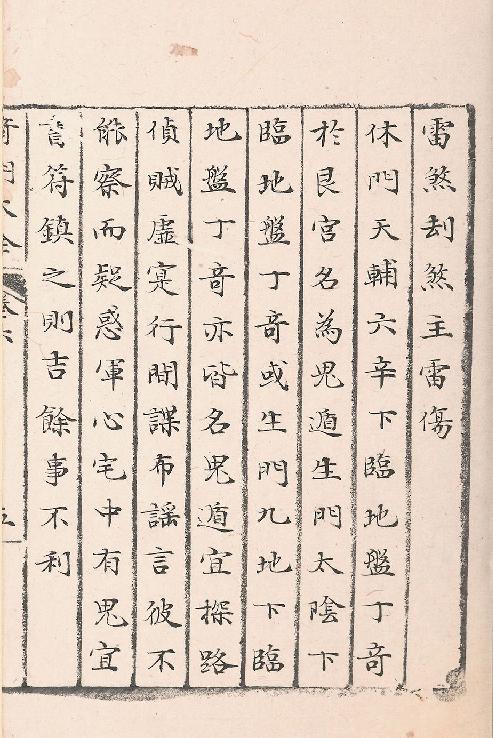 雷煞刦煞主雷傷
休門天輔六辛下臨地盤丁奇
於艮宮名為鬼遁生門太陰下
臨地盤丁奇或生門九地下臨
地盤丁奇亦皆名鬼遁宜探路
偵賊虛寔行間謀布謡言彼不
能察而疑惑軍心宅中有鬼宜
書符鎮之則吉餘事不利
奇門大全 卷六 五